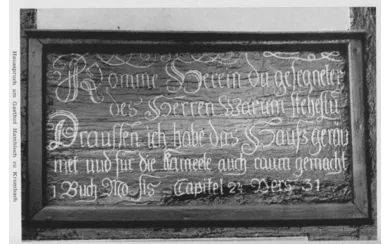 Komme Herein du gesegneter
des Herren Warum stehestu
Draussen ich habe das Hauß geräu
met und für die Kameele auch raum gemacht
1 Buch Mo sis Capitel 24 Vers 31
Hausspruch am Gasthof Hainbach zu Krombach